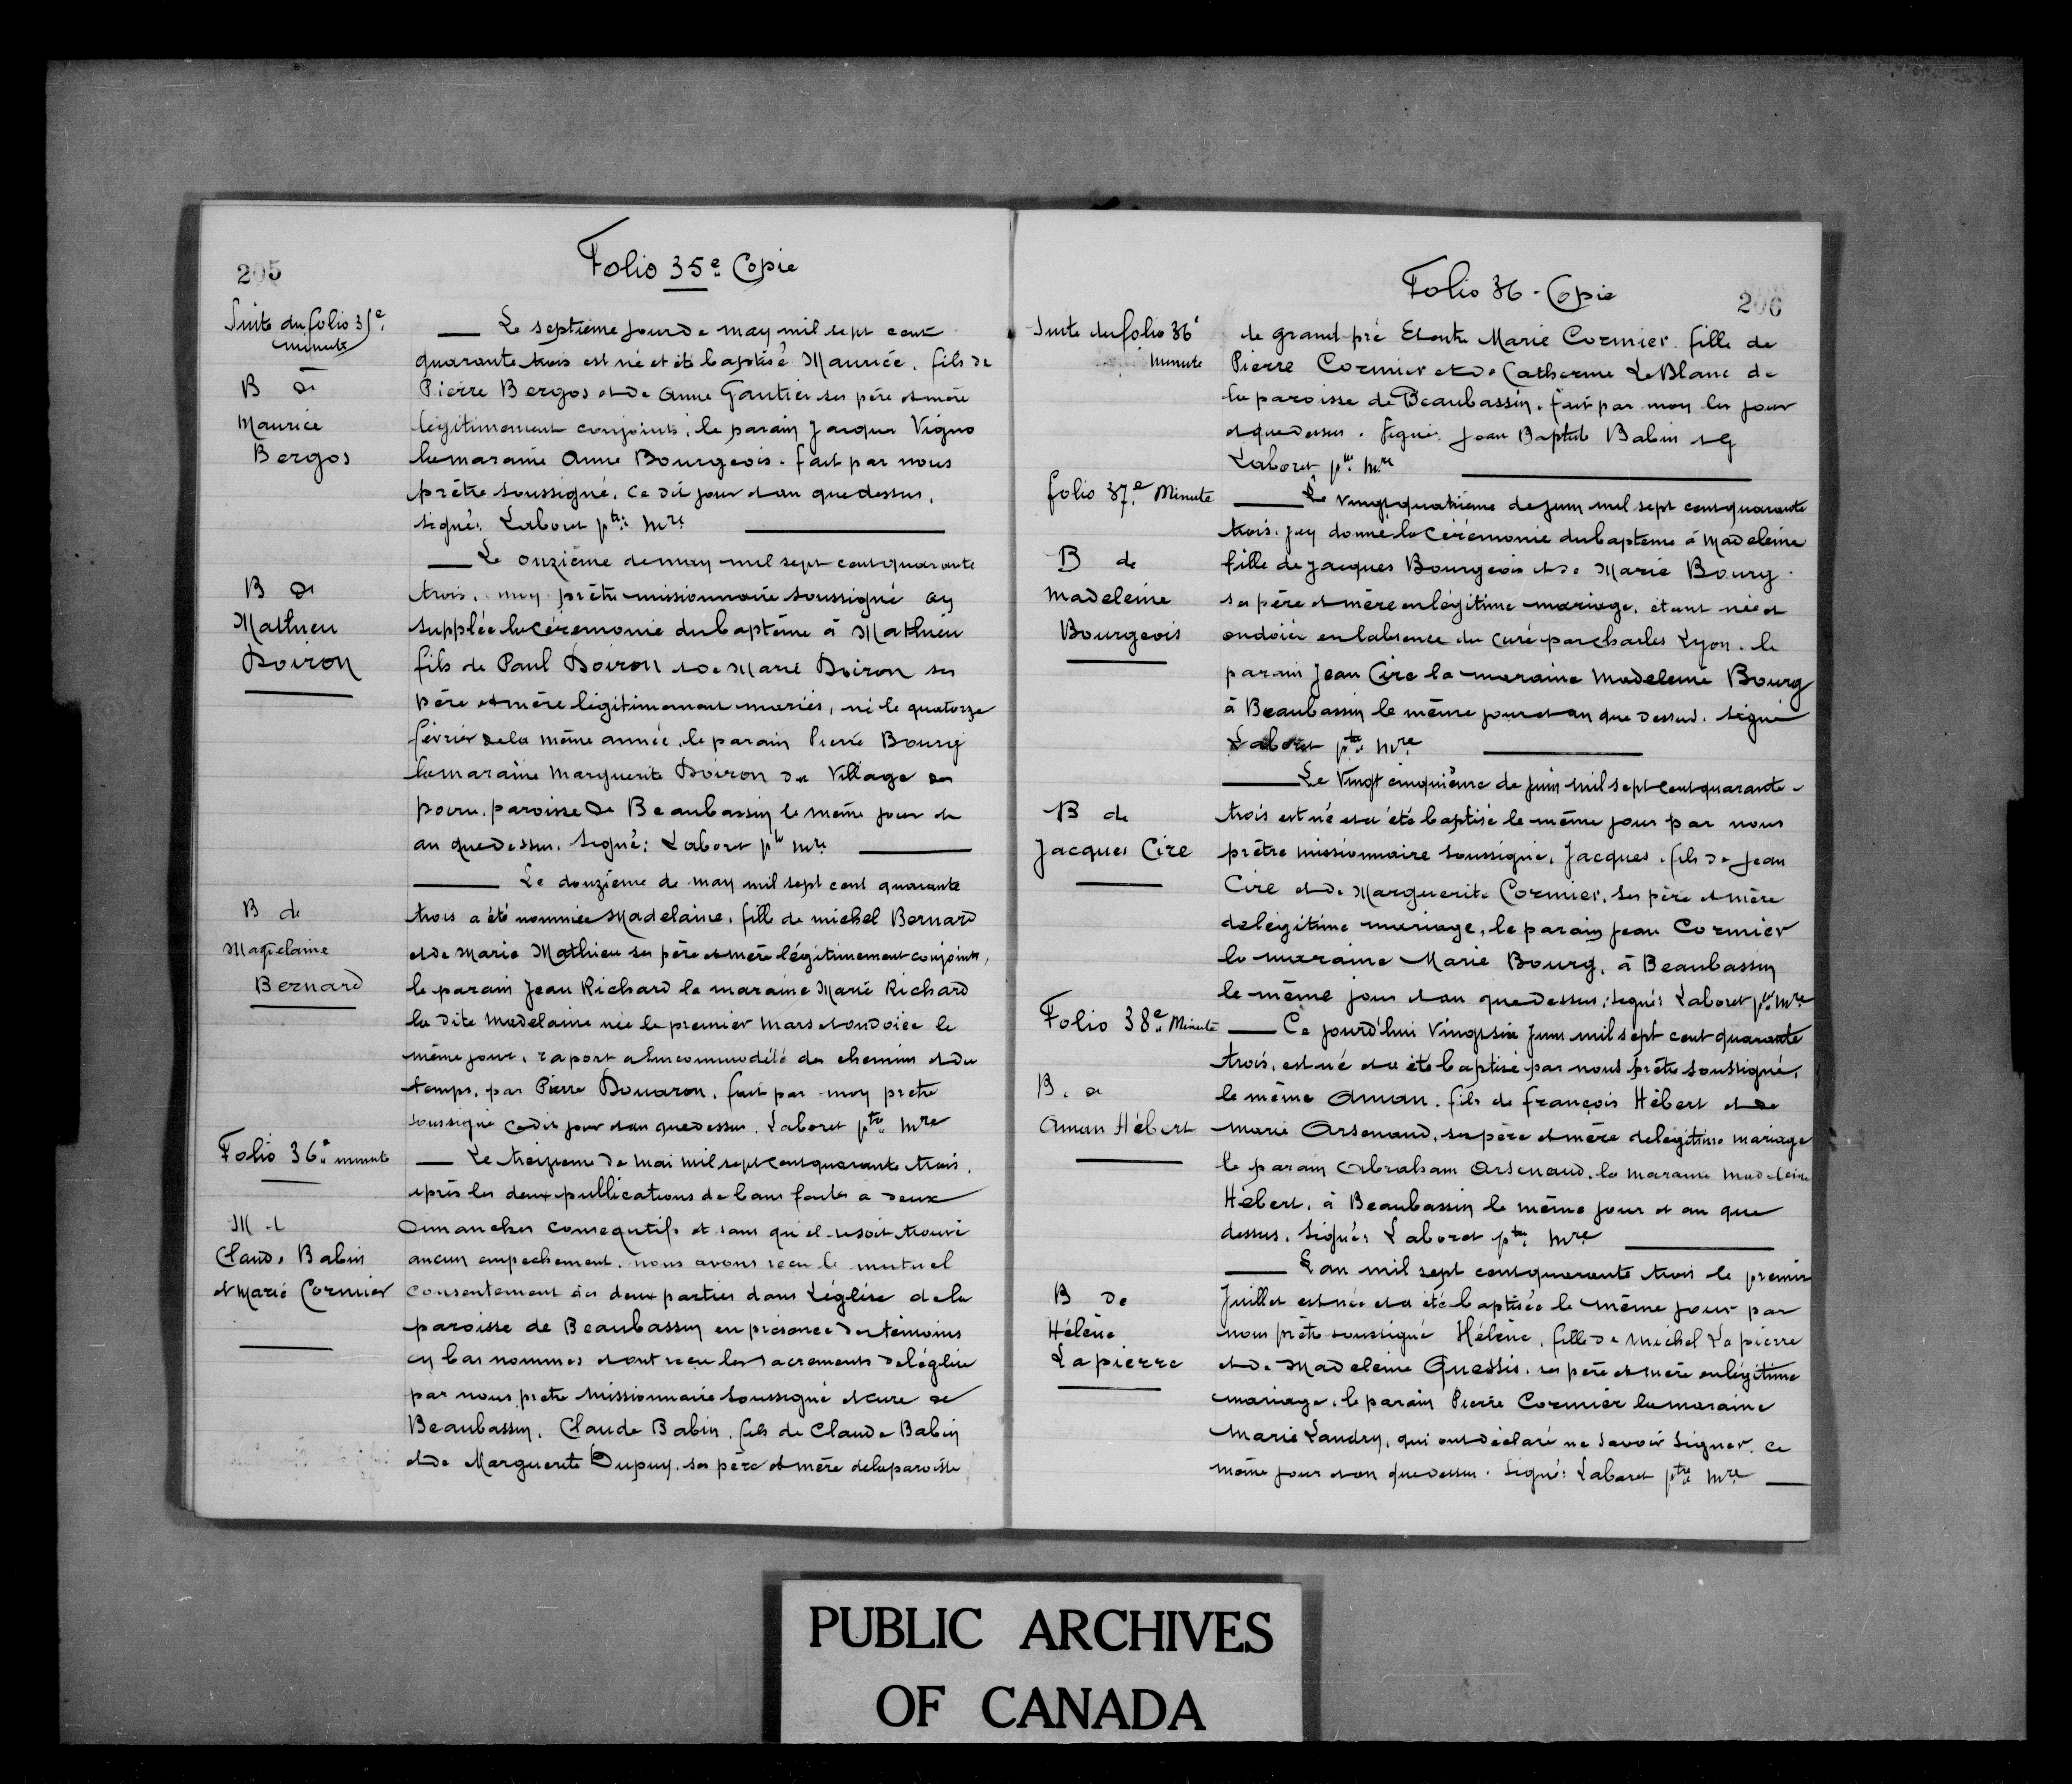 205
Folio 35e Copie
Suite du folio 35e
minute
Le septieme jour de may mil sept cent
quarante trois est né et été baptisé Maurice. fils de
B de
Pierre Bergos et de Anne Gautier ses père et mère
Maurice
légitimement conjoints, le parain Jacques Vigno
Bergos
la maraine Anne Bourgeois. fait par nous
prêtre soussigné, ce dit jour et an que dessus,
signé: Laboret ptre: Mre
Le onzième de may mil sept cent quarante
B de
trois, moy prêtre missionnaire soussigné ay
Mathieu
supplée la céremonie du baptême à Mathieu
Doiron
fils de Paul Doiron et de Marie Doiron ses
père et mère légitimement mariés, né le quatorze
février de la même année, le parain Pierre Bourg
la maraine Marguerite Doiron du Village de
paroisse de Beaubassin le même jour et
an que dessus. Signé: Laboret ptre Mre
Le douzième de may mil sept cent quarante
B de
trois a été nommée Madelaine, fille de michel Bernard
Madelaine
et de Marie Mathieu ses père et mère légitimement conjoints,
Bernard
le parain Jean Richard la maraine Marie Richard
la dite Madelaine née le premier Mars et ondoiée le
même jour, raport a lincommodité des chemins et du
temps, par Pierre Douaron, fait par moy pretre
soussigné cedit jour et an que dessus. Laboret ptre Mre
Folio 36e minute
Le treizieme de mai mil sept cent quarante trois.
après les deux publications de bans faites a deux
M de
Dimanches consequtifs et sans qu'il se soit trouvé
Claude Babin
aucun empechement. nous avons reçu le mutuel
et Marie Cormier
consentement des deux parties dans L'église de la
paroisse de Beaubassin en présence des témoins
cy bas nommes et ont reçu les sacrements de l'église
par nous pretre Missionnaire soussigné et cure de
Beaubassin, Claude Babin, fils de Claude Babin
et de Marguerite Dupuy, ses père et mère de la paroisse
Folio 36 - Copie
206
Suite du folio 36e
minute
de grand pré Et entre Marie Cormier. fille de
Pierre Cormier et de Catherine LeBlanc de
la paroisse de Beaubassin. fait par moy les jour
et que dessus. Signé: Jean Baptiste Babin et
Laboret ptre Mre
folio 37e Minute
Le vingt quatrième de juin mil sept cent quarante
trois. j'ey donné la cérémonie du bapteme à Madeleine
B de
fille de Jacques Bourgeois et de Marie Bourg.
Madeleine
ses père et mère en légitime mariage, étant née et
Bourgeois
ondoiée en l'absence du curé par Charles Lyon. le
parain Jean Cire la maraine Madeleine Bourg
à Beaubassin le même jour et an que dessus. Signé
Laboret ptre Mre
Le Vingt cinquième de juin mil sept cent quarante-
B de
trois est né et a été baptisé le même jour par nous
Jacques Cire
prêtre missionnaire soussigné, Jacques, fils de Jean
Cire et de Marguerite Cormier, ses père et mère
de légitime mariage, le parain Jean Cormier
la maraine Marie Bourg, à Beaubassin
le même jour et an que dessus: signé: Laboret ptre Mre
Folio 38e Minute
Ce jourd'hui Vingtsix Juin mil sept cent quarante
trois, est né et a été baptisé par nous prêtre soussigné,
B. de
le même Aman. fils de françois Hébert et de
Aman Hébert
Marie Arsenaud, ses père et mère de légitime mariage
le parain Abraham Arsenaud. la maraine Madeleine
Hébert, à Beaubassin le même jour et an que
dessus. Signé: Laboret ptre Mre
L'an mil sept cent quarante trois le premier
B de
Juillet est née et a été baptisée le même jour par
Hélène
nous prêtre soussigné Hélène, fille de Michel Lapierre
Lapierre
et de Madeleine Quessis. ses père et mère en légitime
mariage. le parain Pierre Cormier la maraine
Marie Landry, qui ont déclaré ne savoir signer. ce
même jour et an que dessus. Signé: Laboret ptre Mre
PUBLIC ARCHIVES
OF CANADA